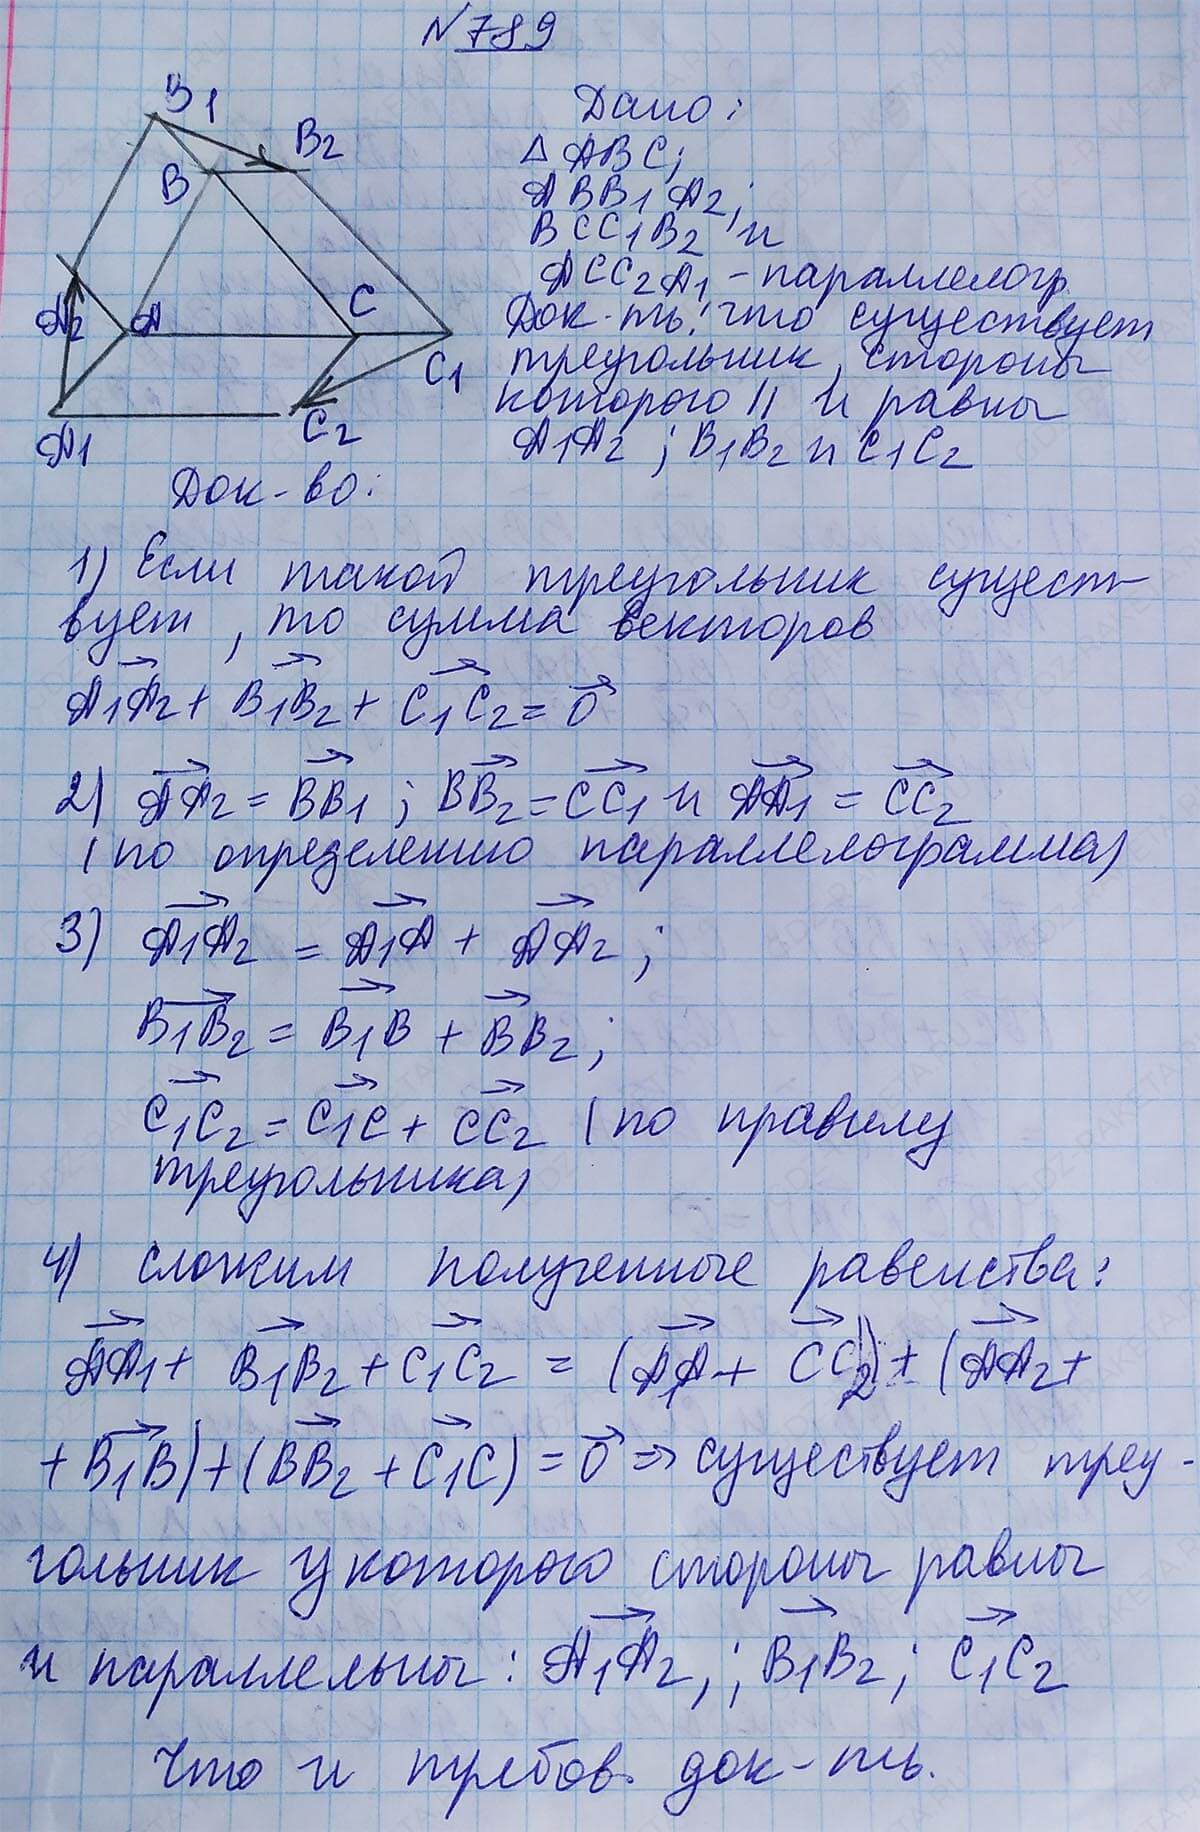 N789
B1
B2
B
A2
A
C
C1
A1
C2
Дано:
△ABC;
ABB1A2;
BCC1B2 и
ACC2A1 - параллелогр.
Док-ть: что существует
треугольник, стороны
которого || и равны
A1A2; B1B2 и C1C2
Док-во:
1) Если такой треугольник сущест-
вует, то сумма векторов
A1A2 + B1B2 + C1C2 = 0
2) AA2 = BB1; BB2 = CC1 и AA1 = CC2
(по определению параллелограмма)
3) A1A2 = A1A + AA2;
B1B2 = B1B + BB2;
C1C2 = C1C + CC2 (по правилу
треугольника)
4) сложим полученные равенства:
AA1 + B1B2 + C1C2 = (A1A + CC2) + (AA2 +
+ B1B) + (BB2 + C1C) = 0 => существует треу-
гольник у которого стороны равны
и параллельны: A1A2,; B1B2; C1C2
Что и требов. док-ть.